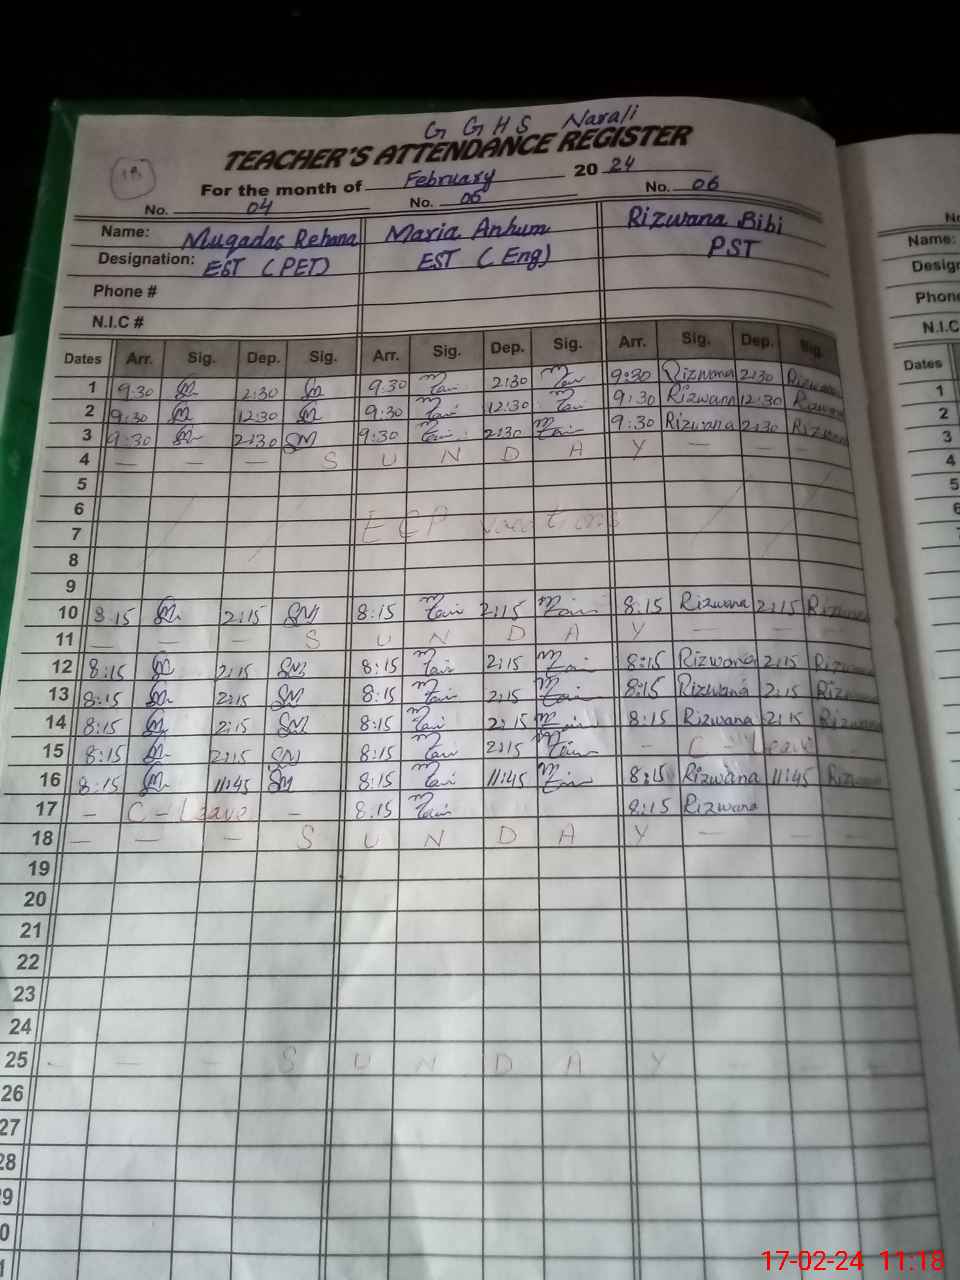 G G H S Narali
TEACHER'S ATTENDANCE REGISTER
For the month of February 20 24
No. 04 No. 05 No. 06
Name: Muqadas Rehana Maria Anhum Rizwana Bibi
Designation: EST (PET) EST (Eng) PST
Phone #
N.I.C #
Dates Arr. Sig. Dep. Sig. Arr. Sig. Dep. Sig. Arr. Sig. Dep. Sig.
1 9:30 2:30 9:30 2:30 9:30 Rizwana 2:30 Rizwana
2 9:30 12:30 9:30 12:30 9:30 Rizwana 12:30 Rizwana
3 9:30 2:30 SM 9:30 2:30 9:30 Rizwana 2:30 Rizwana
4 — — — S U N D A Y — —
5
6
7 ECP vacations
8
9
10 8:15 2:15 SM 8:15 2:15 8:15 Rizwana 2:15 Rizwana
11 — — — S U N D A Y — — —
12 8:15 2:15 SM 8:15 2:15 8:15 Rizwana 2:15 Rizwana
13 8:15 2:15 SM 8:15 2:15 8:15 Rizwana 2:15 Rizwana
14 8:15 2:15 SM 8:15 2:15 8:15 Rizwana 2:15 Rizwana
15 8:15 2:15 SM 8:15 2:15 — C - Leave —
16 8:15 11:45 SM 8:15 11:45 8:15 Rizwana 11:45 Rizwana
17 — C - Leave — 8:15 8:15 Rizwana
18 — — — S U N D A Y — — —
19
20
21
22
23
24
25 — — — S U N D A Y — — —
26
27
28
9
0
1
No
Name:
Design
Phone
N.I.C
Dates
1
2
3
4
5
6
7
8
9
10
11
12
13
14
15
16
17
18
17-02-24 11:18